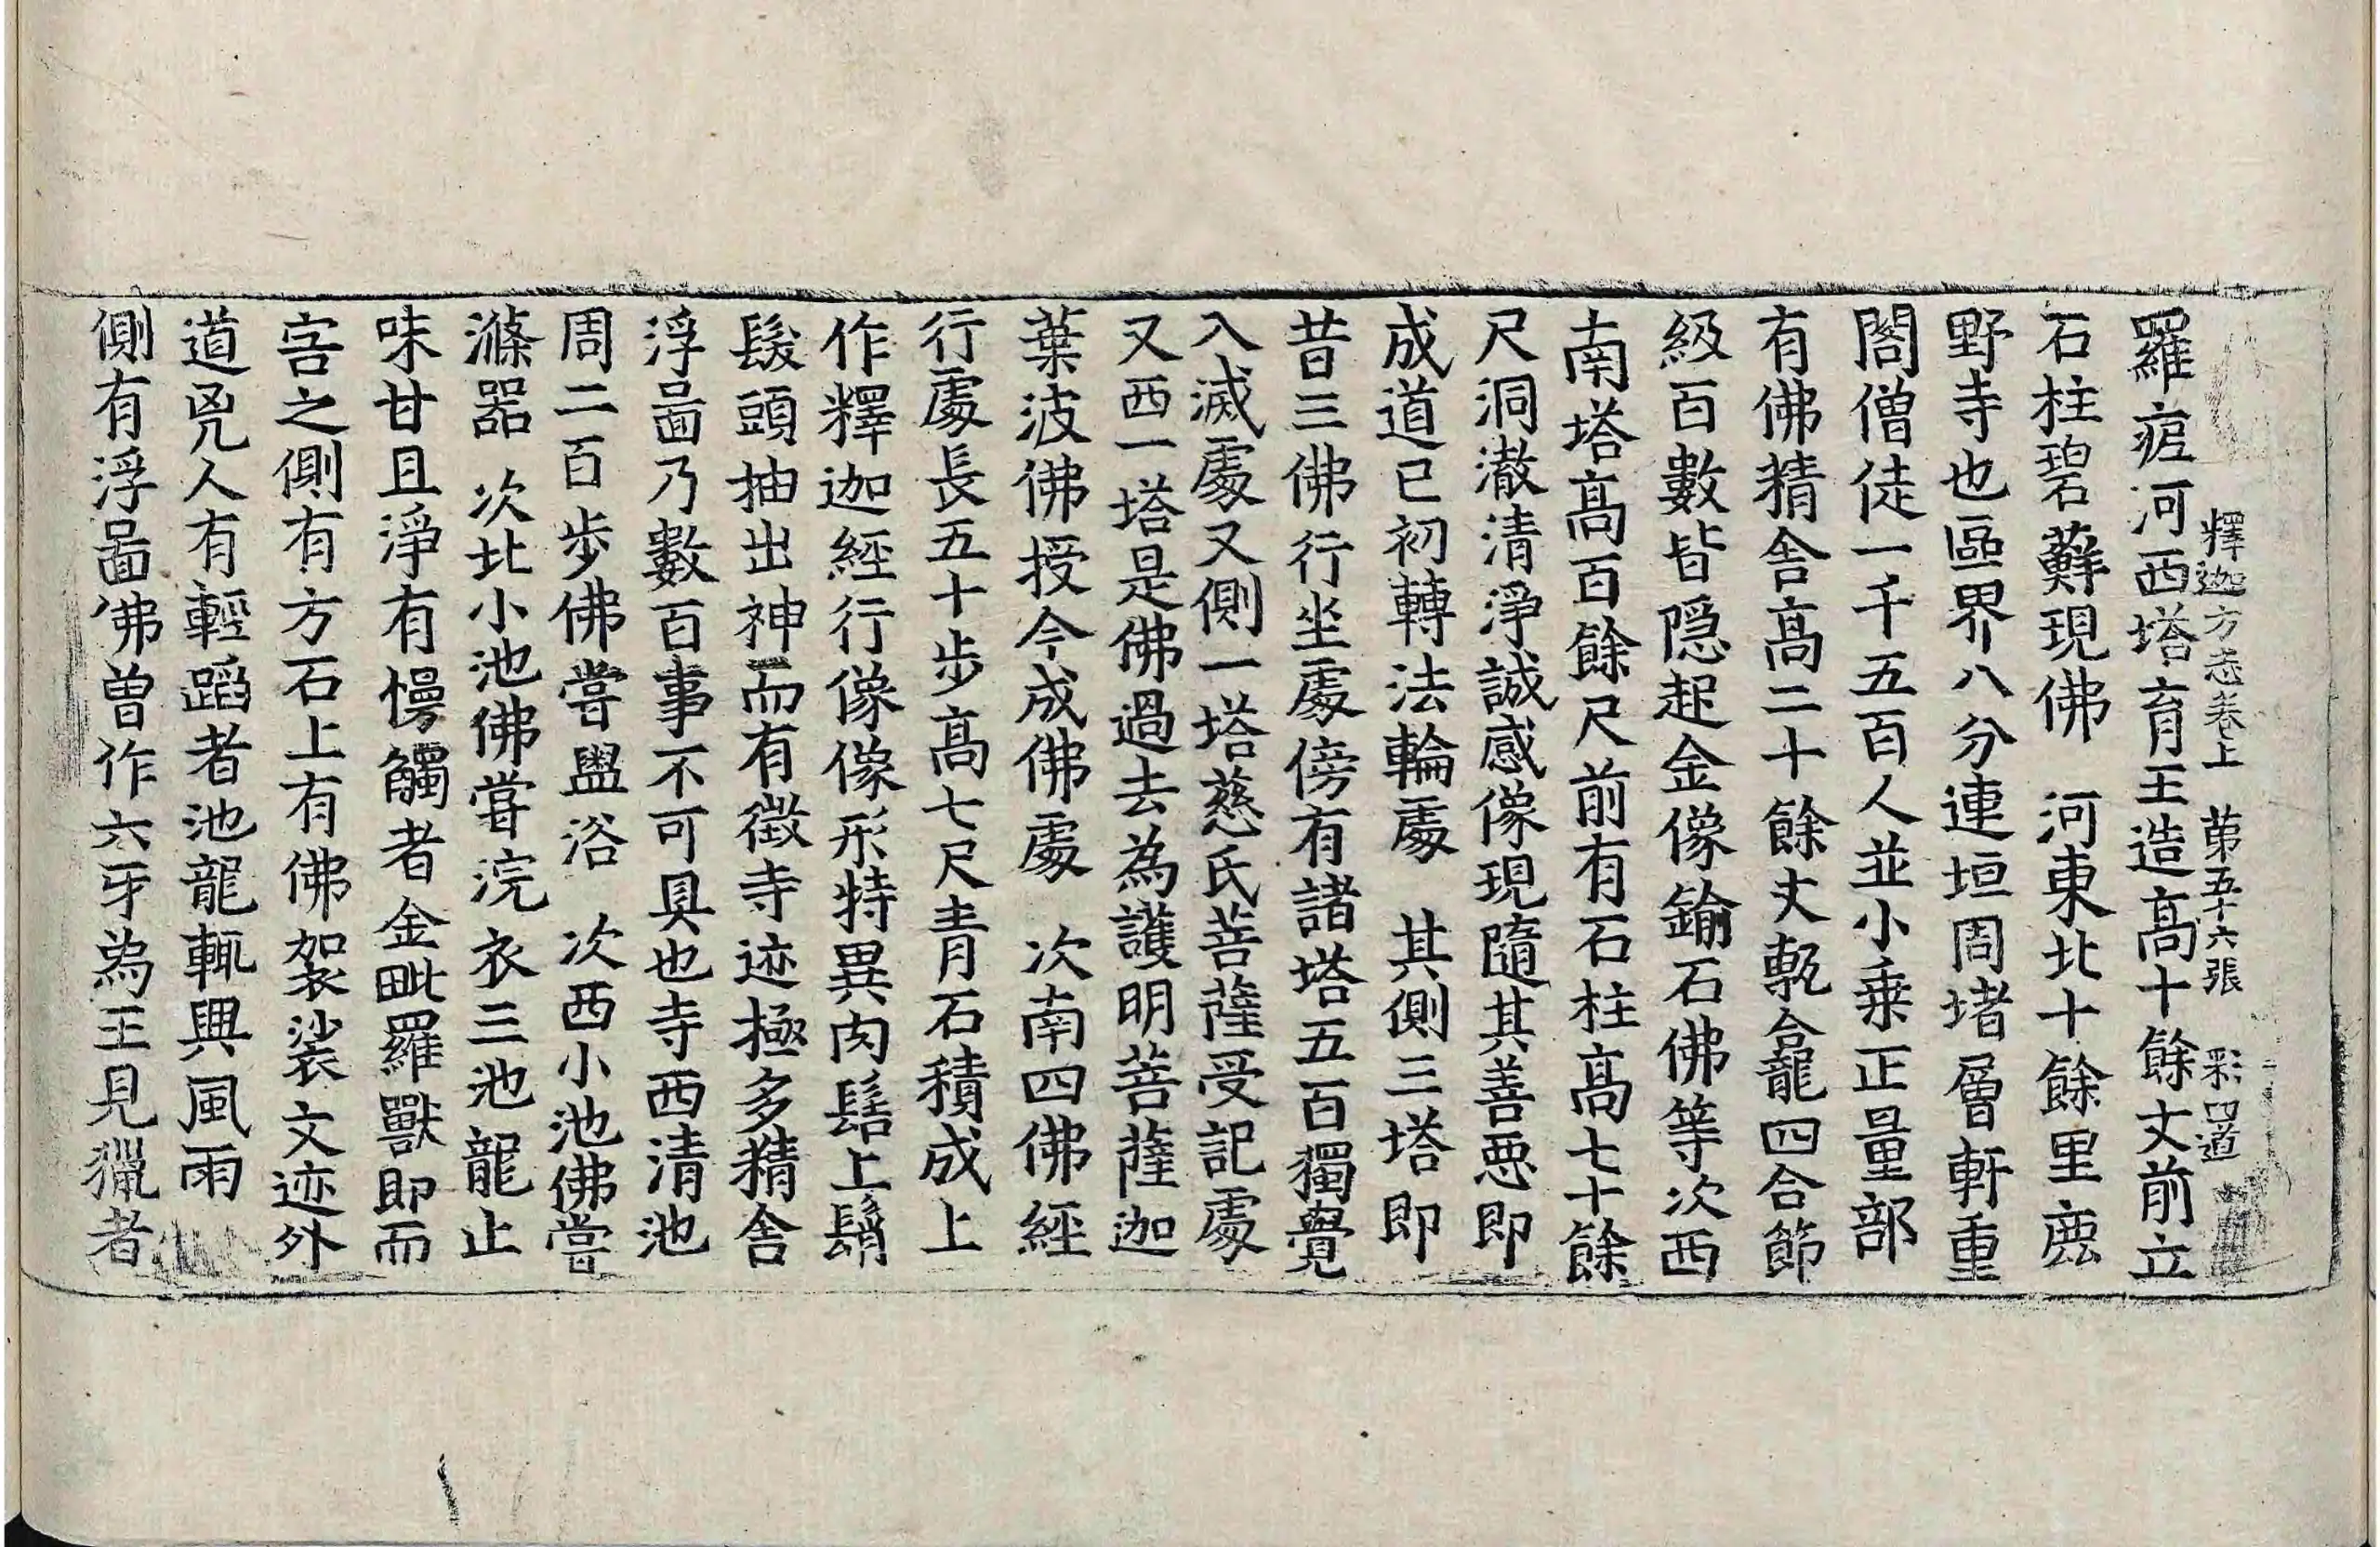 釋迦方志卷上 第五十六張 彩
羅痆河西塔育王造髙十餘丈前立
石柱碧蘚現佛 河東北十餘里鹿
野寺也區界八分連垣周堵層軒重
閣僧徒一千五百人並小乗正量部
有佛精舍髙二十餘丈甎龕四合節
級百數皆隠起金像鍮石佛等次西
南塔髙百餘尺前有石柱髙七十餘
尺洞澈清淨誠感像現隨其善惡即
成道已初轉法輪處 其側三塔即
昔三佛行坐處傍有諸塔五百獨覺
入滅處又側一塔慈氏菩薩受記處
又西一塔是佛過去為護明菩薩迦
葉波佛授今成佛處 次南四佛經
行處長五十步髙七尺青石積成上
作釋迦經行像像形特異肉髻上鬚
髮頭抽出神而有徵寺迹極多精舍
浮啚乃數百事不可具也寺西清池
周二百步佛嘗盥浴 次西小池佛嘗
滌器 次北小池佛嘗浣衣三池龍止
味甘且淨有慢觸者金毗羅獸即而
害之側有方石上有佛袈裟文迹外
道兇人有輕蹈者池龍輒興風雨
側有浮啚佛曽作六牙為王見獵者